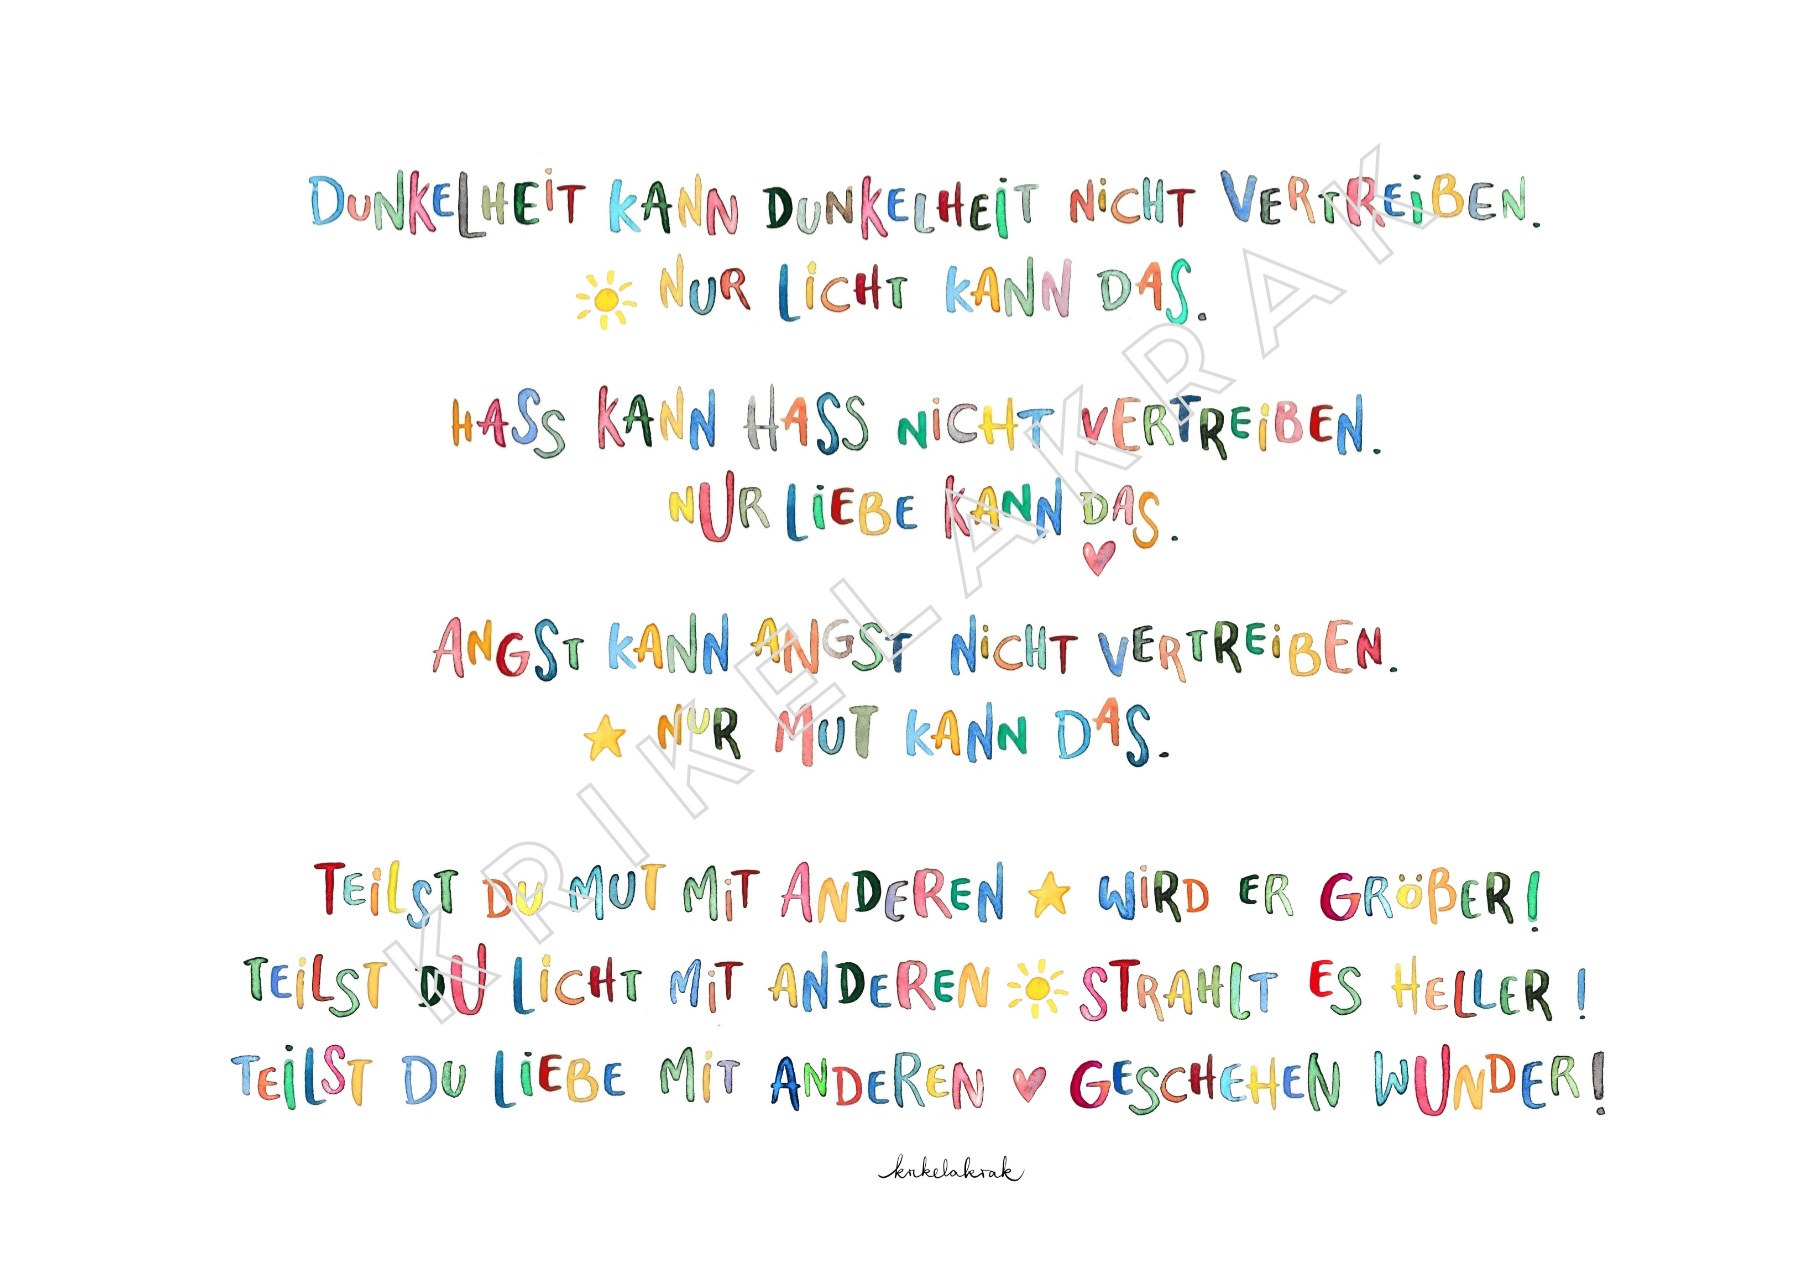 DUNKELHEIT KANN DUNKELHEIT NICHT VERTREIBEN.
NUR LICHT KANN DAS.
HASS KANN HASS NICHT VERTREIBEN.
NUR LIEBE KANN DAS.
ANGST KANN ANGST NICHT VERTREIBEN.
NUR MUT KANN DAS.
TEILST DU MUT MIT ANDEREN WIRD ER GRÖßER!
TEILST DU LICHT MIT ANDEREN STRAHLT ES HELLER!
TEILST DU LIEBE MIT ANDEREN GESCHEHEN WUNDER!
krikelakrak
KRIKELAKRAK